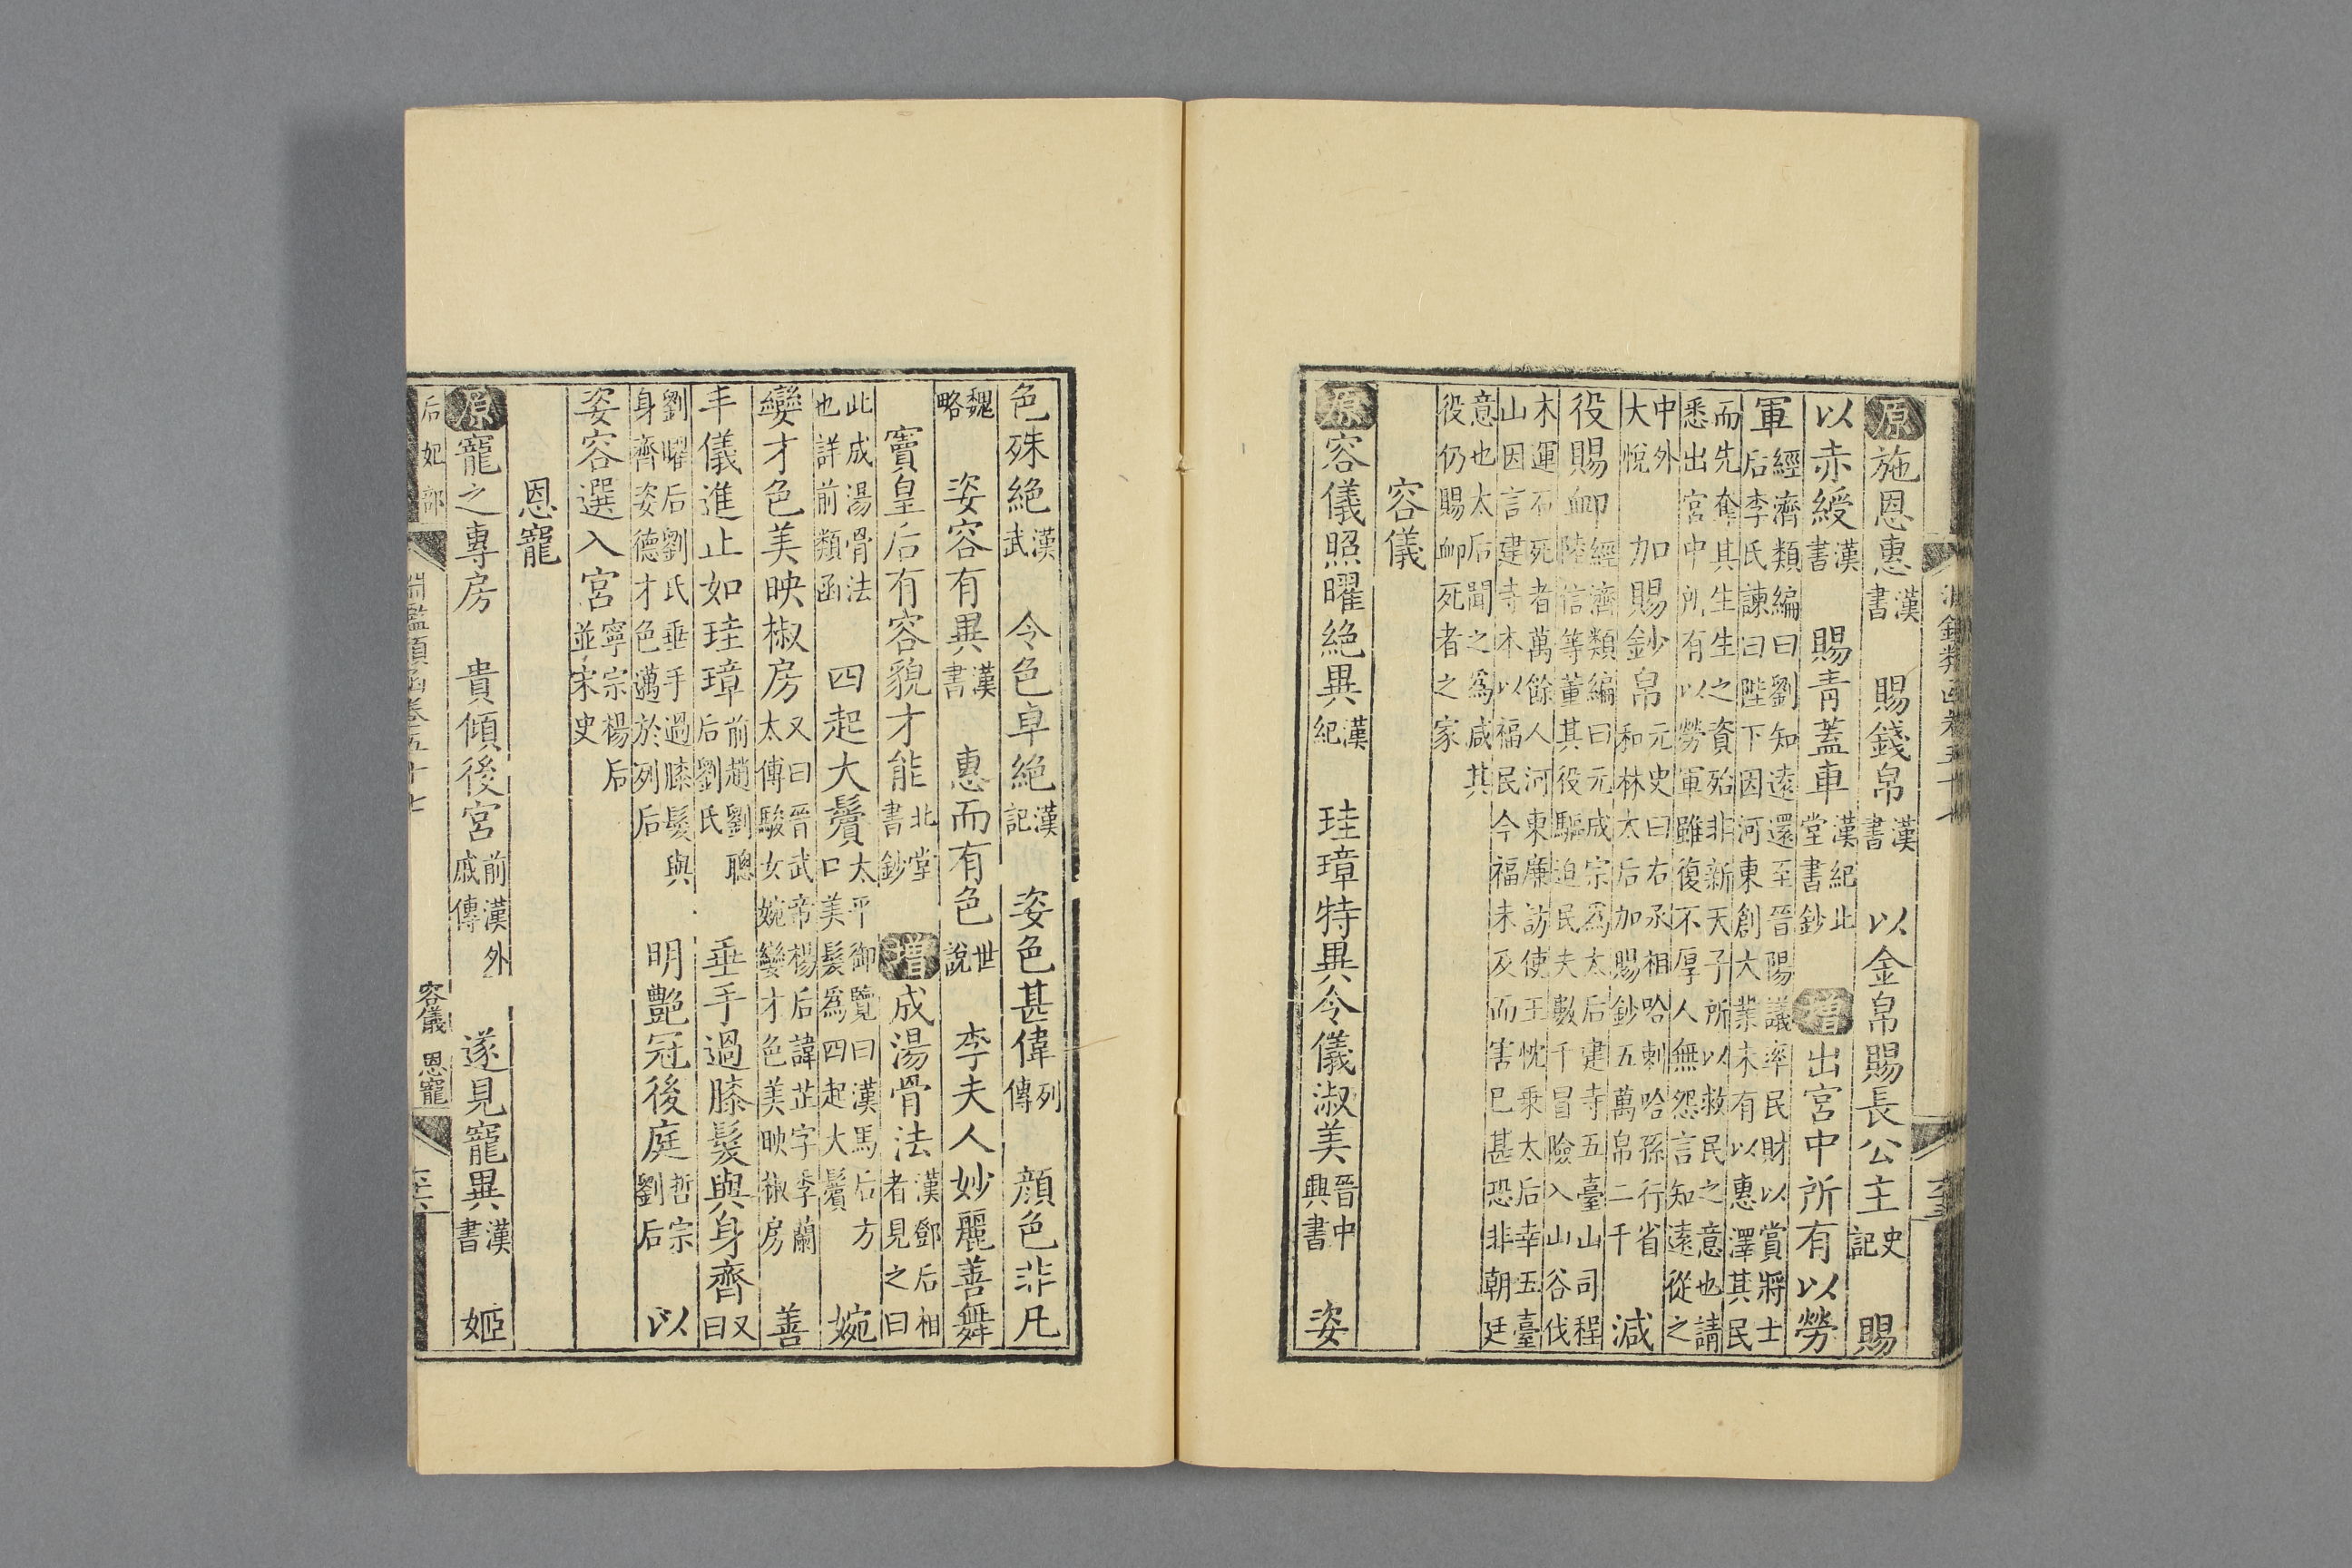 原施恩惠漢書　賜錢帛漢書　以金帛賜長公主史記　賜
以赤綬漢書　賜青蓋車漢紀北堂書鈔　增出宮中所有以勞
軍經濟類編曰劉知遠還至晉陽議率民財以賞將士后李氏諫曰陛下因河東創大業未有以惠澤其民
而先奪其生生之資殆非新天子所以救民之意也請悉出宮中所有以勞軍雖復不厚人無怨言知遠從之
中外大悅　加賜鈔帛元史曰右丞相哈剌哈孫行省和林太后加賜鈔五萬帛二千　減
役賜卹經濟類編曰元成宗爲太后建寺五臺山司程陸信等董其役驅迫民夫數千冒險入山谷伐
木運石死者萬餘人河東廉訪使王忱乘太后幸五臺山因言建寺本以福民今福未及而害已甚恐非朝廷
意也太后聞之爲咸其役仍賜卹死者之家
容儀
原容儀照曜絶異漢紀　珪璋特異令儀淑美晉中興書　姿
色殊絶漢武　令色卓絶漢記　姿色甚偉列傳　顔色非凡
魏略　姿容有異漢書　惠而有色世說　李夫人妙麗善舞
竇皇后有容貌才能北堂書鈔　增成湯骨法漢鄧后相者見之曰
此成湯骨法也詳前類函　四起大鬟太平御覽曰漢馬后方口美髮爲四起大鬟　婉
孌才色美映椒房又曰晉武帝楊后諱芷字季蘭太傅駿女婉孌才色美映椒房　善
丰儀進止如珪璋前趙劉聰后劉氏　垂手過膝髮與身齊又曰
劉曜后劉氏垂手過膝髮與身齊姿德才色邁於列后　明艷冠後庭哲宗劉后　以
姿容選入宮寧宗楊后並宋史
恩寵
原寵之專房　貴傾後宮前漢外戚傳　遂見寵異漢書　姬
后妃部　淵鑑類函卷五十七　容儀　恩寵